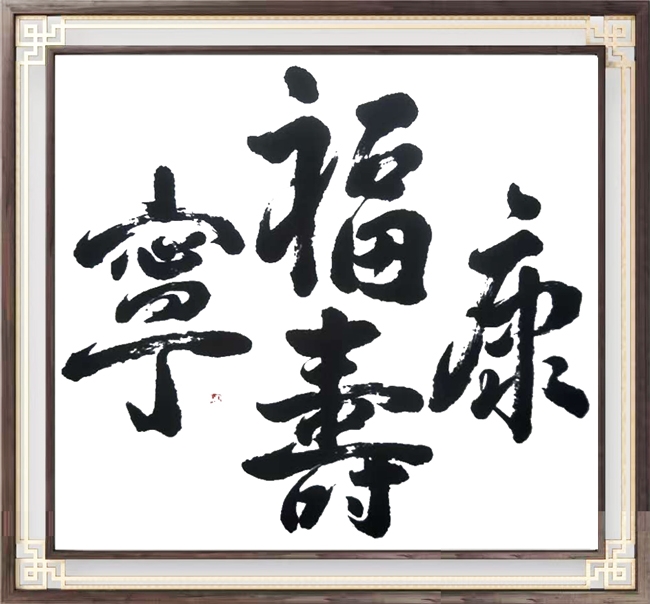 福壽
康
寧